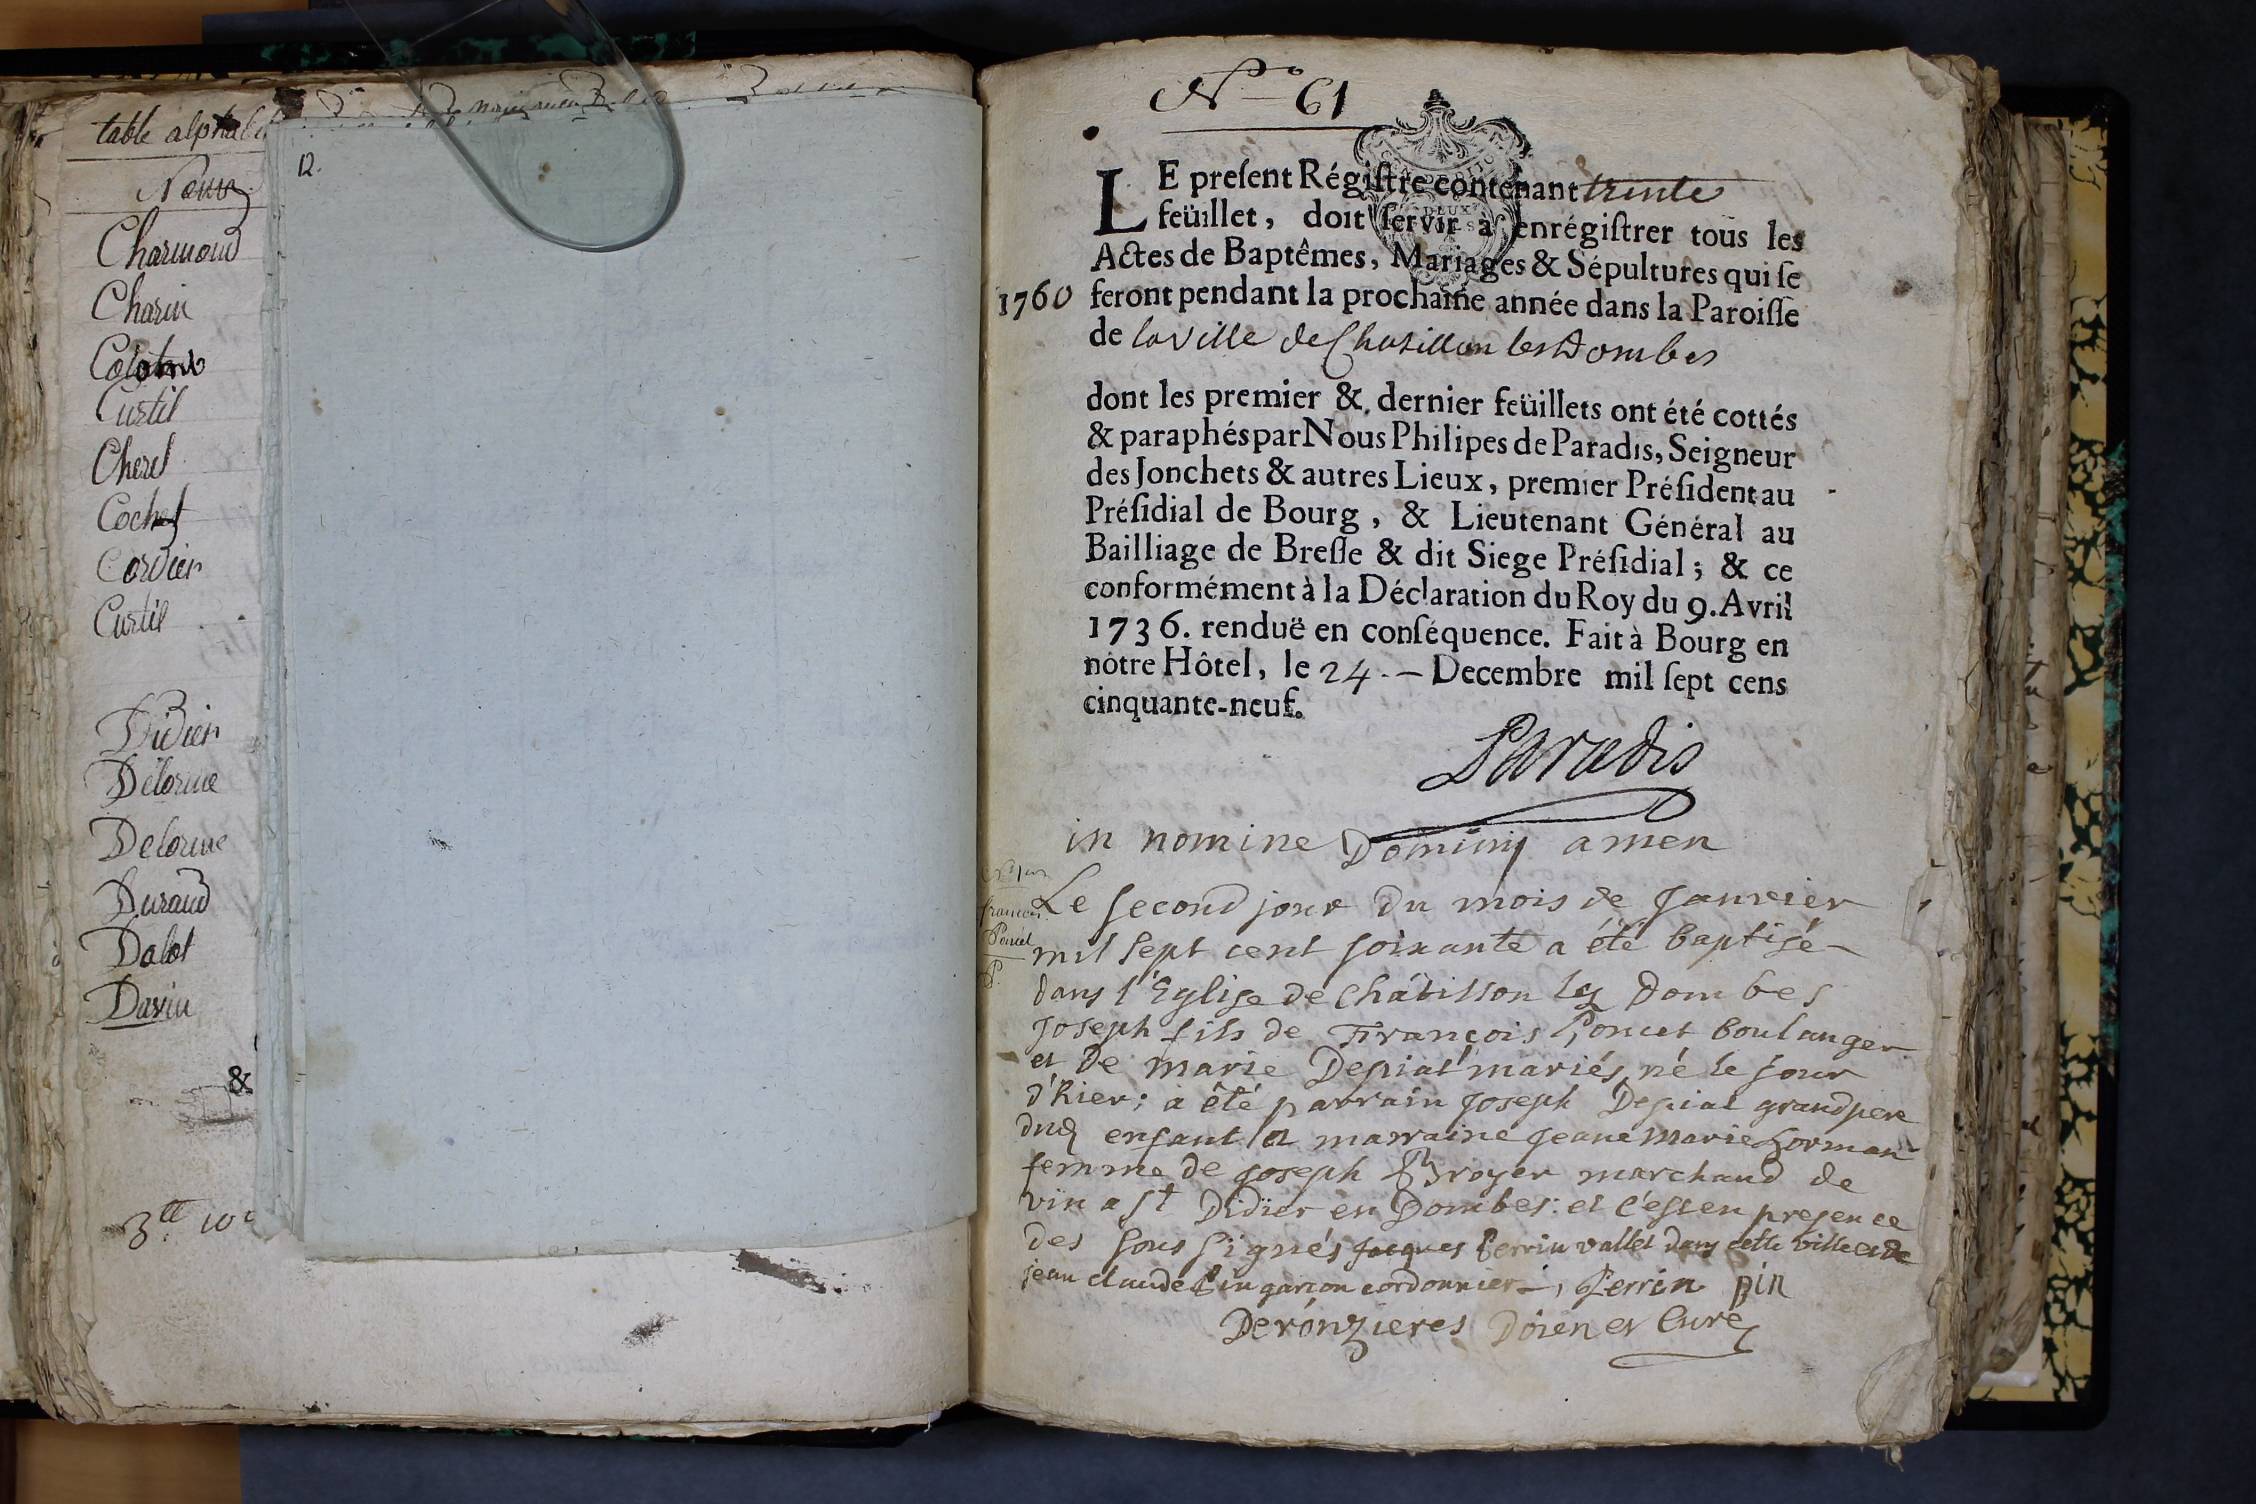 table alphabé
Noms
Charmond
Charin
Colomb
Curtil
Cheret
Cochet
Cordier
Curtil
Didier
Delorme
Delorme
Durand
Dalot
Davin
&
3tt 10s
12.
N° 61
LE preſent Régiſtre contenant trente
feüillet, doit ſervir à enrégiſtrer tous les
Actes de Baptêmes, Mariages & Sépultures qui ſe
1760 feront pendant la prochaine année dans la Paroiſſe
de la ville de Chatillon les Dombes
dont les premier & dernier feüillets ont été cottés
& paraphés par Nous Philipes de Paradis, Seigneur
des Jonchets & autres Lieux, premier Préſident au
Préſidial de Bourg, & Lieutenant Général au
Bailliage de Breſſe & dit Siege Préſidial; & ce
conformément à la Déclaration du Roy du 9. Avril
1736. renduë en conſéquence. Fait à Bourg en
nôtre Hôtel, le 24.— Decembre mil ſept cens
cinquante-neuf.
Paradis
in nomine Dominij amen
Le second jour du mois de Janvier
mil sept cent soixante a été baptisé
dans l'Eglise de Châtillon les Dombes
Joseph fils de François Poncet boulanger
et de marie Depiat mariés, né le jour
d'hier; a été parrain Joseph Depiat grandpere
dud enfant et marraine Jeane Marie
femme de Joseph Broyer marchand de
vin a St Didier en Dombes: et c'est en presence
des sous signés Jacques Perrin vallet dans cette ville et de
jean claude Pin garçon cordonnier, Perrin pin
Deronzieres Doien et Curé